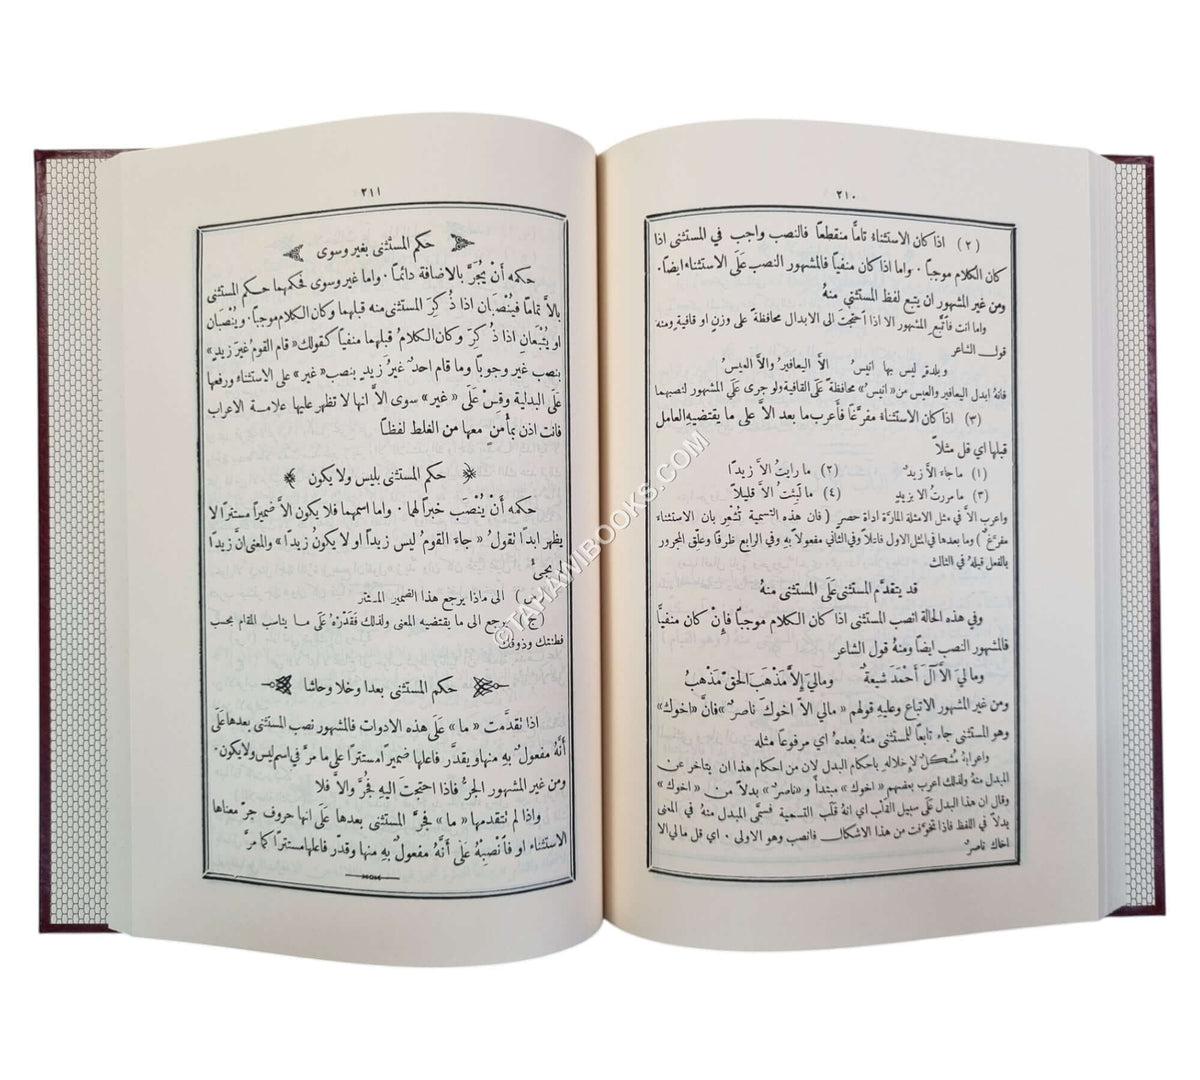 ٢١٠
(٢) اذا كان الاستثناء تامًّا منقطعًا فالنصب واجب في المستثنى اذا
كان الكلام موجبًا. واما اذا كان منفيًا فالمشهور النصب عَلَى الاستثناء ايضًا.
ومن غير المشهور ان يتبع لفظ المستثنى منهُ
واما انت فاتَّبع المشهور الا اذا احتجت الى الابدال محافظة على وزنٍ او قافية ومنه
قول الشاعر
وبلدةٍ ليس بها انيسُ الَّا اليعافيرُ والَّا العيسُ
فانهُ ابدل اليعافير والعيس من «انيس» محافظة عَلَى القافية ولو جرى عَلَى المشهور لنصبهما
(٣) اذا كان الاستثناء مفرَّغًا فأعرب ما بعد الَّا على ما يقتضيهِ العامل
قبلها اي قل مثلًا
(١) ما جاء الَّا زيدٌ (٢) ما رايتُ الَّا زيدًا
(٣) ما مررتُ الا بزيدٍ (٤) ما لَبِثتُ الَّا قليلًا
واعرب الَّا في مثل الامثلة المارَّة اداة حصر (فان هذه التسمية تُشعِر بان الاستثناء
مفرَّغ) وما بعدها في المثل الاول فاعلًا وفي الثاني مفعولًا بهِ وفي الرابع ظرفًا وعلّق المجرور
بالفعل قبلهُ في الثالث
قد يتقدَّم المستثنى عَلَى المستثنى منهُ
وفي هذه الحالة انصب المستثنى اذا كان الكلام موجبًا فإِنْ كان منفيًّا
فالمشهور النصب ايضًا ومنهُ قول الشاعر
وماليَ الَّا آلَ أَحْمَدَ شيعةٌ وماليَ إِلَّا مَذْهَبَ الحقِّ مَذْهبُ
ومن غير المشهور الاتباع وعليهِ قولهم «مالي الَّا اخوك ناصرٌ» فانَّ «اخوك»
وهو المستثنى جاء تابعًا للمستثنى منه بعدهُ اي مرفوعًا مثله
واعرابهُ مُشكلٌ لإِخلاله باحكام البدل لان من احكام هذا ان يتاخر عن
المبدل منهُ ولذلك اعرب بعضهم «اخوك» مبتدأ و«ناصرٌ» بدلًا من «اخوك»
وقال ان هذا البدل عَلَى سبيل القلب اي انهُ قلب التسمية فسمَّى المبدل منهُ في المعنى
بدلًا في اللفظ فاذا تخوَّفت من هذا الاشكال فانصب وهو الاولى. اي قل مالي الا
اخاك ناصرٌ
٢١١
حكم المستثنى بغير وسوى
حكمه أَنْ يُجَرَّ بالاضافة دائمًا. واما غير وسوى فحكمهما حكم المستثنى
بالَّا تمامًا فيُنْصَبَان اذا ذُكِرَ المستثنى منه قبلهما وكان الكلام موجبًا. ويُنْصَبان
او يُتْبَعَانِ اذا ذُكِرَ وكان الكلامُ قبلهما منفيًا كقولك «قام القومُ غيرَ زيدٍ»
بنصب غير وجوبًا وما قام احدٌ غيرُ زيدٍ بنصب «غير» على الاستثناء ورفعها
عَلَى البدلية وقِسْ عَلَى «غير» سوى الَّا انها لا تظهر عليها علامة الاعراب
فانت اذن بمأمن معها من الغلط لفظًا
حكم المستثنى بليس ولا يكون
حكمه أَنْ يُنْصَب خبرًا لهما. واما اسمهما فلا يكون الَّا ضميرًا مستترًا لا
يظهر ابدًا نقولُ «جاءَ القومُ ليس زيدًا او لا يكونُ زيدًا» والمعنى انَّ زيدًا
لم يجئْ
(س) الى ماذا يرجع هذا الضمير المستتر
(ج) يرجع الى ما يقتضيه المعنى ولذلك فقَدّرْهُ عَلَى ما يناسب المقام بحسب
فطنتك وذوقك
حكم المستثنى بعدا وخلا وحاشا
اذا تقدَّمت «ما» عَلَى هذه الادوات فالمشهور نصب المستثنى بعدها عَلَى
أَنَّهُ مفعولٌ بهِ منها ويقدَّر فاعلها ضميرًا مستترًا على ما مرَّ في اسم ليس ولا يكون.
ومن غير المشهور الجرُّ فاذا احتجت اليهِ فجُرَّ والَّا فلا
واذا لم تتقدمها «ما» فجرَّ المستثنى بعدها عَلَى انها حروف جرّ معناها
الاستثناء او فأنصِبْهُ عَلَى أَنَّهُ مفعولٌ بهِ منها وقدّر فاعلها مستترًا كما مرَّ
©TAHAWIBOOKS.COM